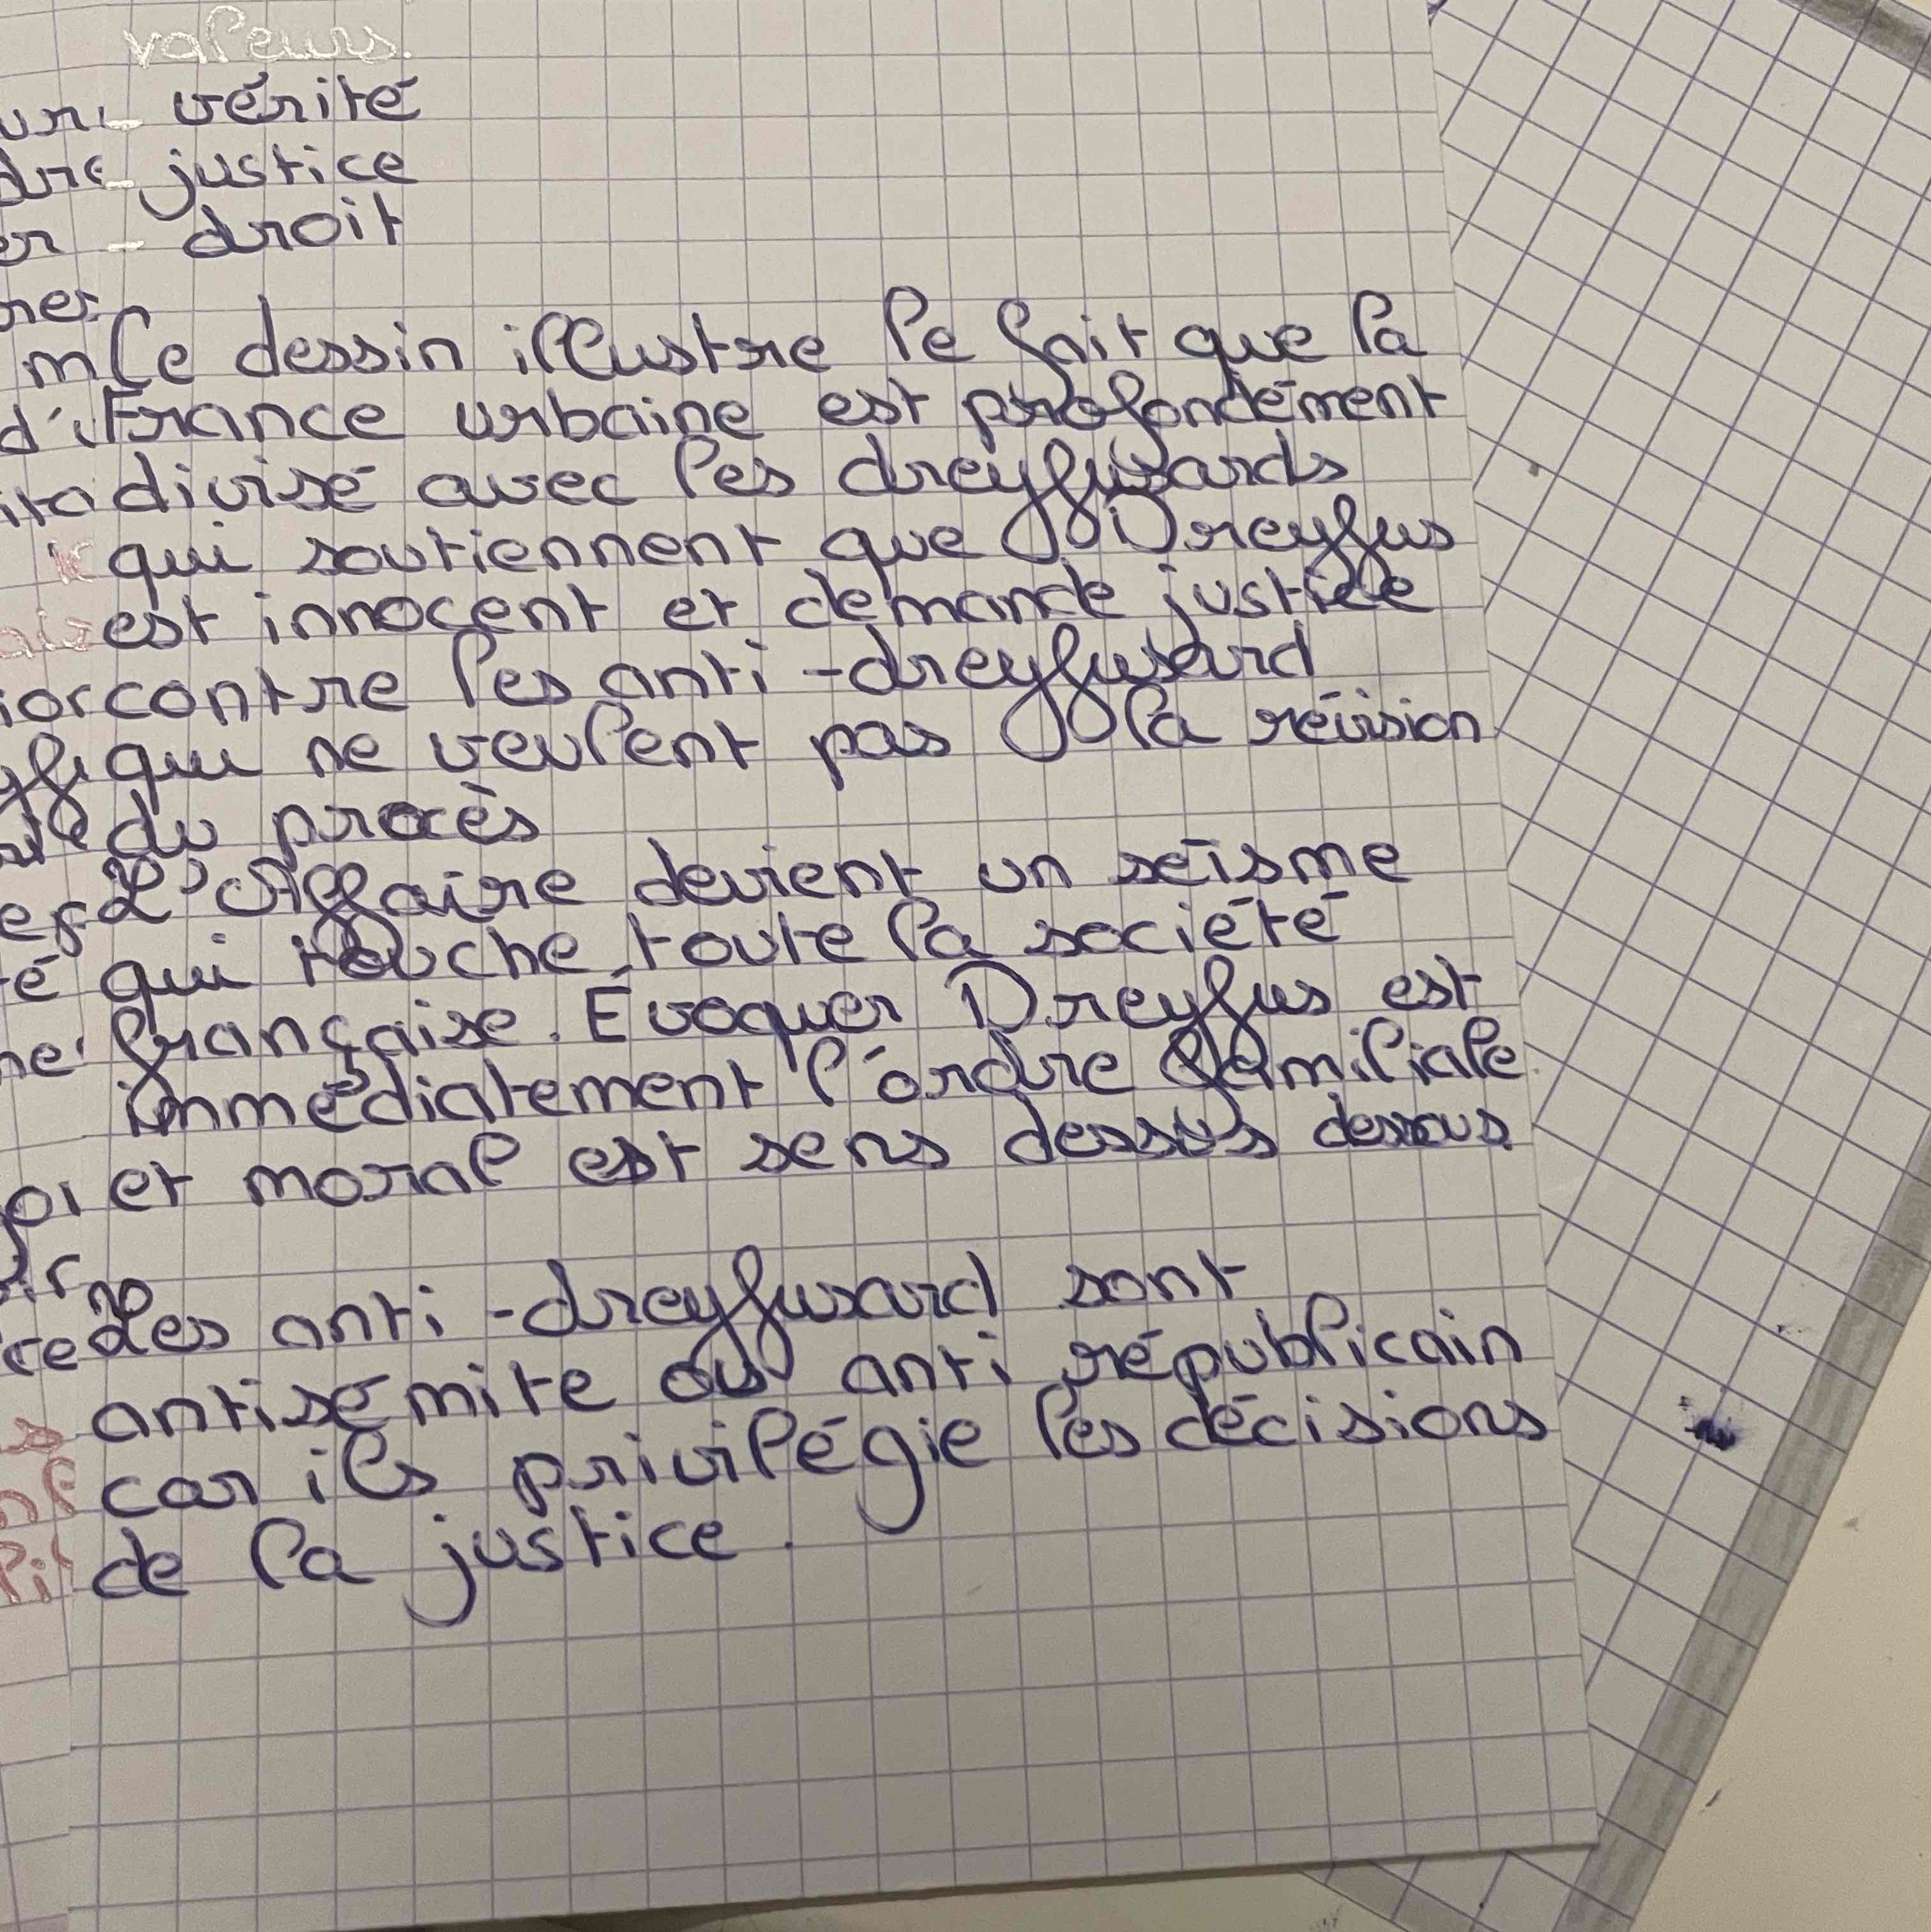 valeurs.
- vérité
- justice
- droit
Ce dessin illustre le fait que la
France urbaine est profondément
divisé avec les dreyfusards
qui soutiennent que Dreyfus
est innocent et demande justice
contre les anti-dreyfusard
qui ne veulent pas la révision
du procès
L'Affaire devient un séisme
qui touche toute la société
française. Évoquer Dreyfus est
immédiatement l'ordre familiale
et moral est sens dessus dessous
Les anti-dreyfusard sont
antisémite ou anti républicain
car ils privilégie les décisions
de la justice.